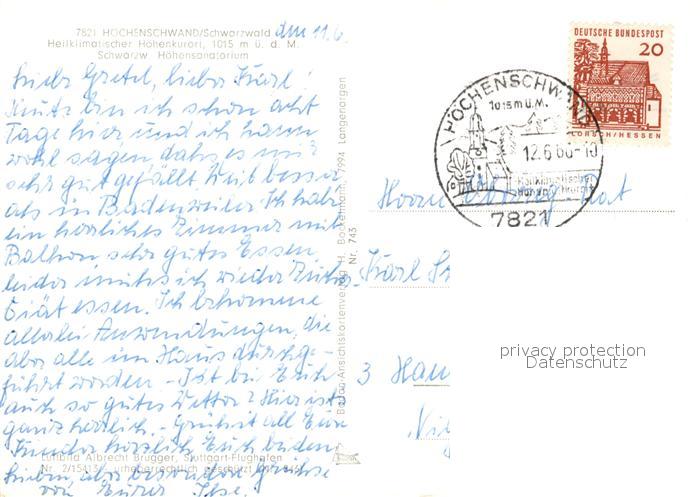 7821 HÖCHENSCHWAND/Schwarzwald
Heilklimatischer Höhenkurort, 1015 m ü. d. M.
Schwarzw. Höhensanatorium
den 11.6.
Liebe Gretel, lieber Karl!
Nun bin ich schon acht
Tage hier und ich kann
wohl sagen, dass es mir
sehr gut gefällt. Weit besser
als in Badenweiler. Ich habe
ein herrliches Zimmer mit
Balkon sehr gutes Essen,
leider muss ich wieder
Diät essen. Ich bekomme
allerlei Anwendungen, die
aber alle im Haus durchge-
führt werden. - Ist bei Euch
auch so gutes Wetter? Hier ist
ganz herrlich. - Grüsst all Eure
Kinder herzlich. Euch beiden
lieben, aber besonders Grüsse
von Eurer Ilse.
Luftbild Albrecht Brugger, Stuttgart-Flughafen
Nr. 2/15413 urheberrechtlich geschützt
Baden-Ansichtskartenverlag H. Bockelmann, 7994 Langenargen
Nr. 743
DEUTSCHE BUNDESPOST
20
LORSCH/HESSEN
HÖCHENSCHWAND
1015 m ü. M.
12.6.66-10
Heilklimatischer
Höhenkurort
7821
Herrn
Rat
Karl
3 Han
privacy protection
Datenschutz